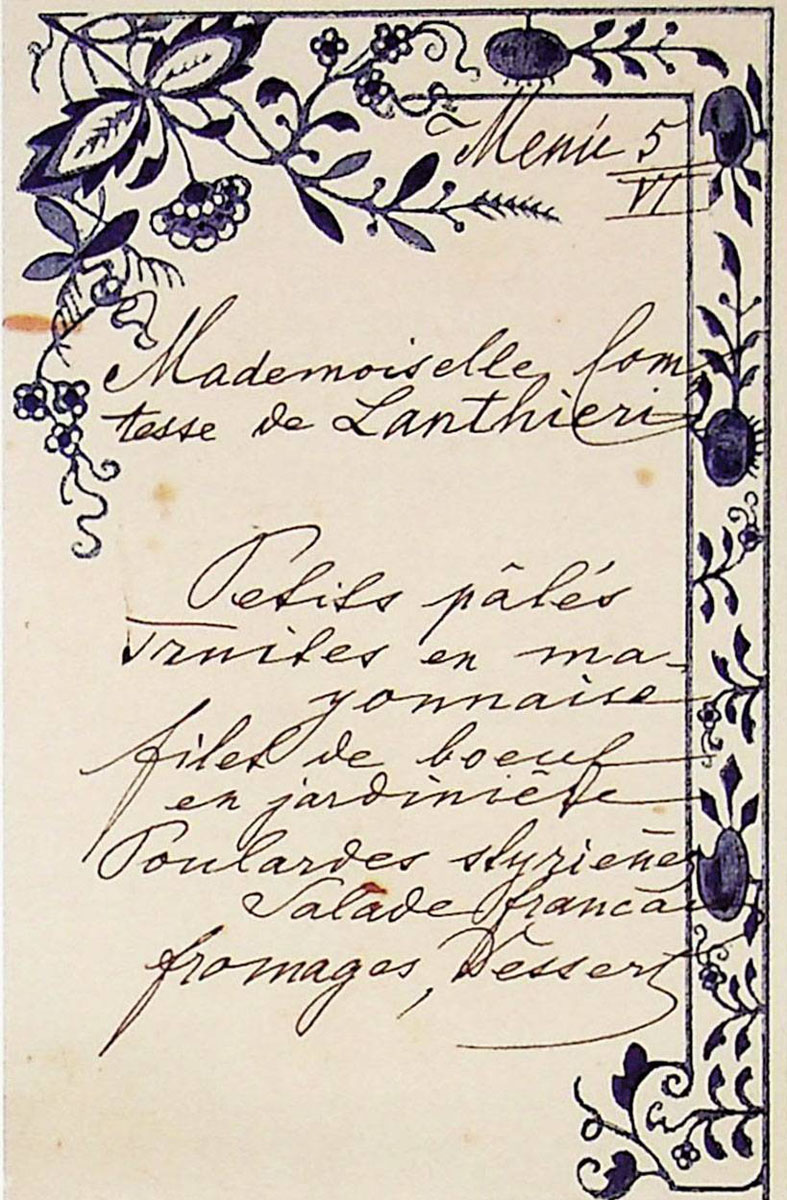 Menu 5
VI
Mademoiselle Com
tesse de Lanthieri
Petits pâtés
Truites en ma-
yonnaise
filet de boeuf
en jardinière
Poulardes styrieñes
Salade francai
fromages, Dessert